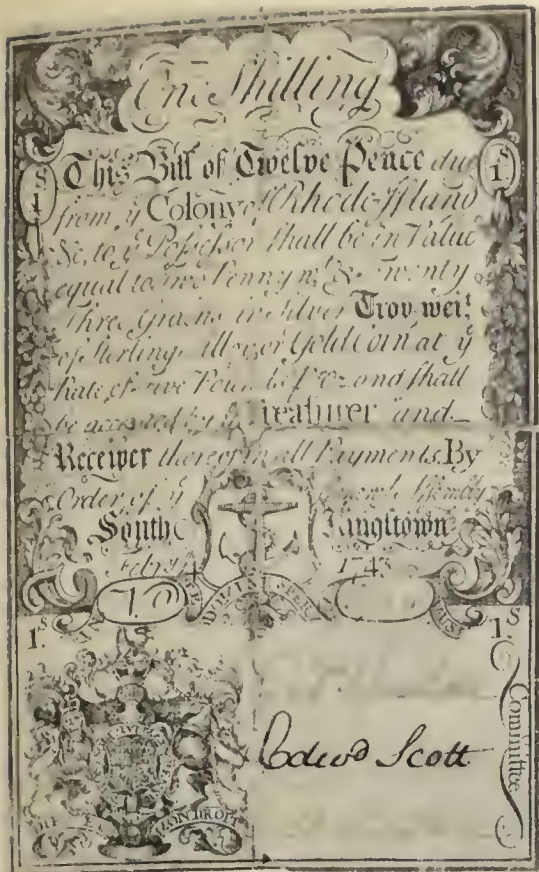 One Shilling
This Bill of Twelve Pence due
1s 1s
from ye Colony of Rhode-Island
&c, to ye Possessor shall be in Value
equal to Two Penny wt & Twenty
Three Grains in Silver Troy weit
of Sterling Alloy or Gold Coin at ye
Rate of Five Pounds pr oz and shall
be accepted by ye Treasurer and
Receiver thereof in all Payments. By
Order of ye General Assembly
South Kingstown
Feby 1743
1s 1s
Committee
Edwd Scott
DIE MON DROIT